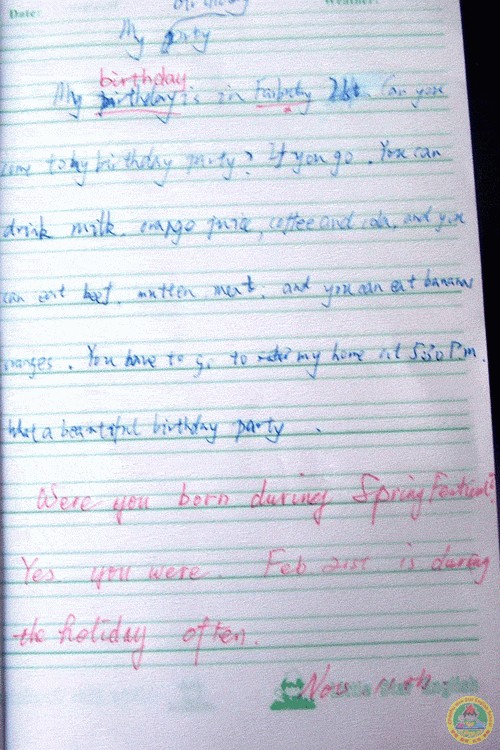 Date: Weather:
birthday
My party
birthday
My birthday is in Faibrday 21st. Can you
come to my birthday party? If you go. You can
drink milk. orange juice, coffee and cola, and you
can eat beef, mutten meat, and you can eat banana
oranges. You have to go to my home at 5:30 Pm.
What a beautiful birthday party.
Were you born during Spring Festival?
Yes you were Feb 21st is during
the holiday often.
Nov 11th.